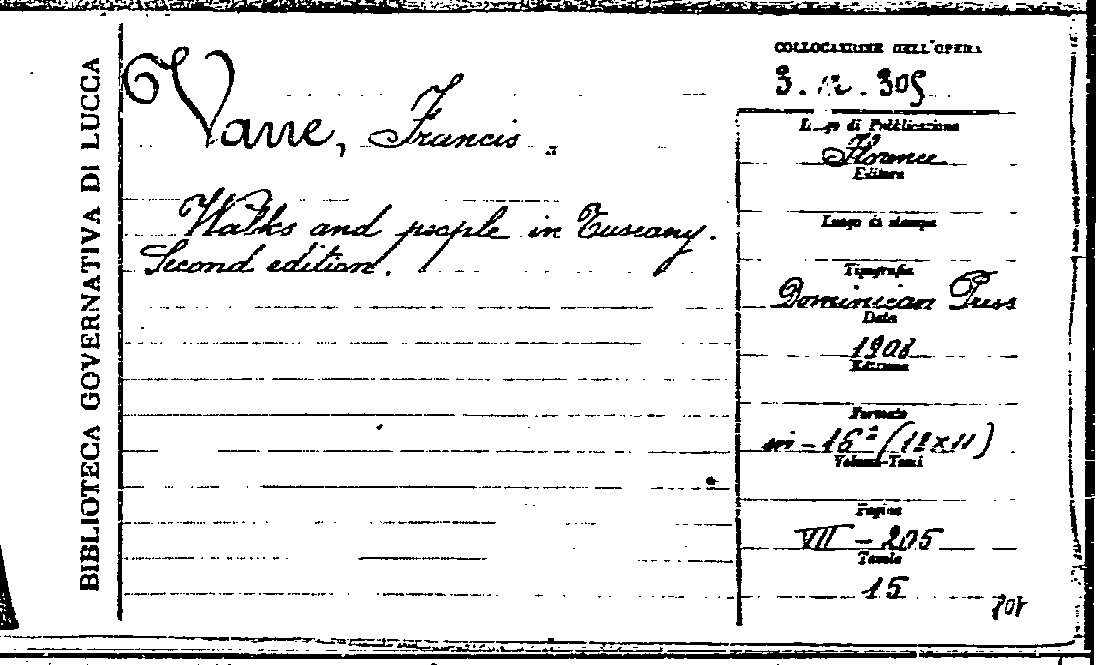 BIBLIOTECA GOVERNATIVA DI LUCCA
Vane, Francis.
Walks and people in Tuscany.
Second edition.
COLLOCAZIONE DELL'OPERA
3. 305
Luogo di Pubblicazione
Florence
Editore
Luogo di stampa
Tipografia
Dominican Press
Data
1908
Edizione
Formato
in-16º (18x11)
Volumi-Tomi
Pagine
VII - 205
Tavole
15